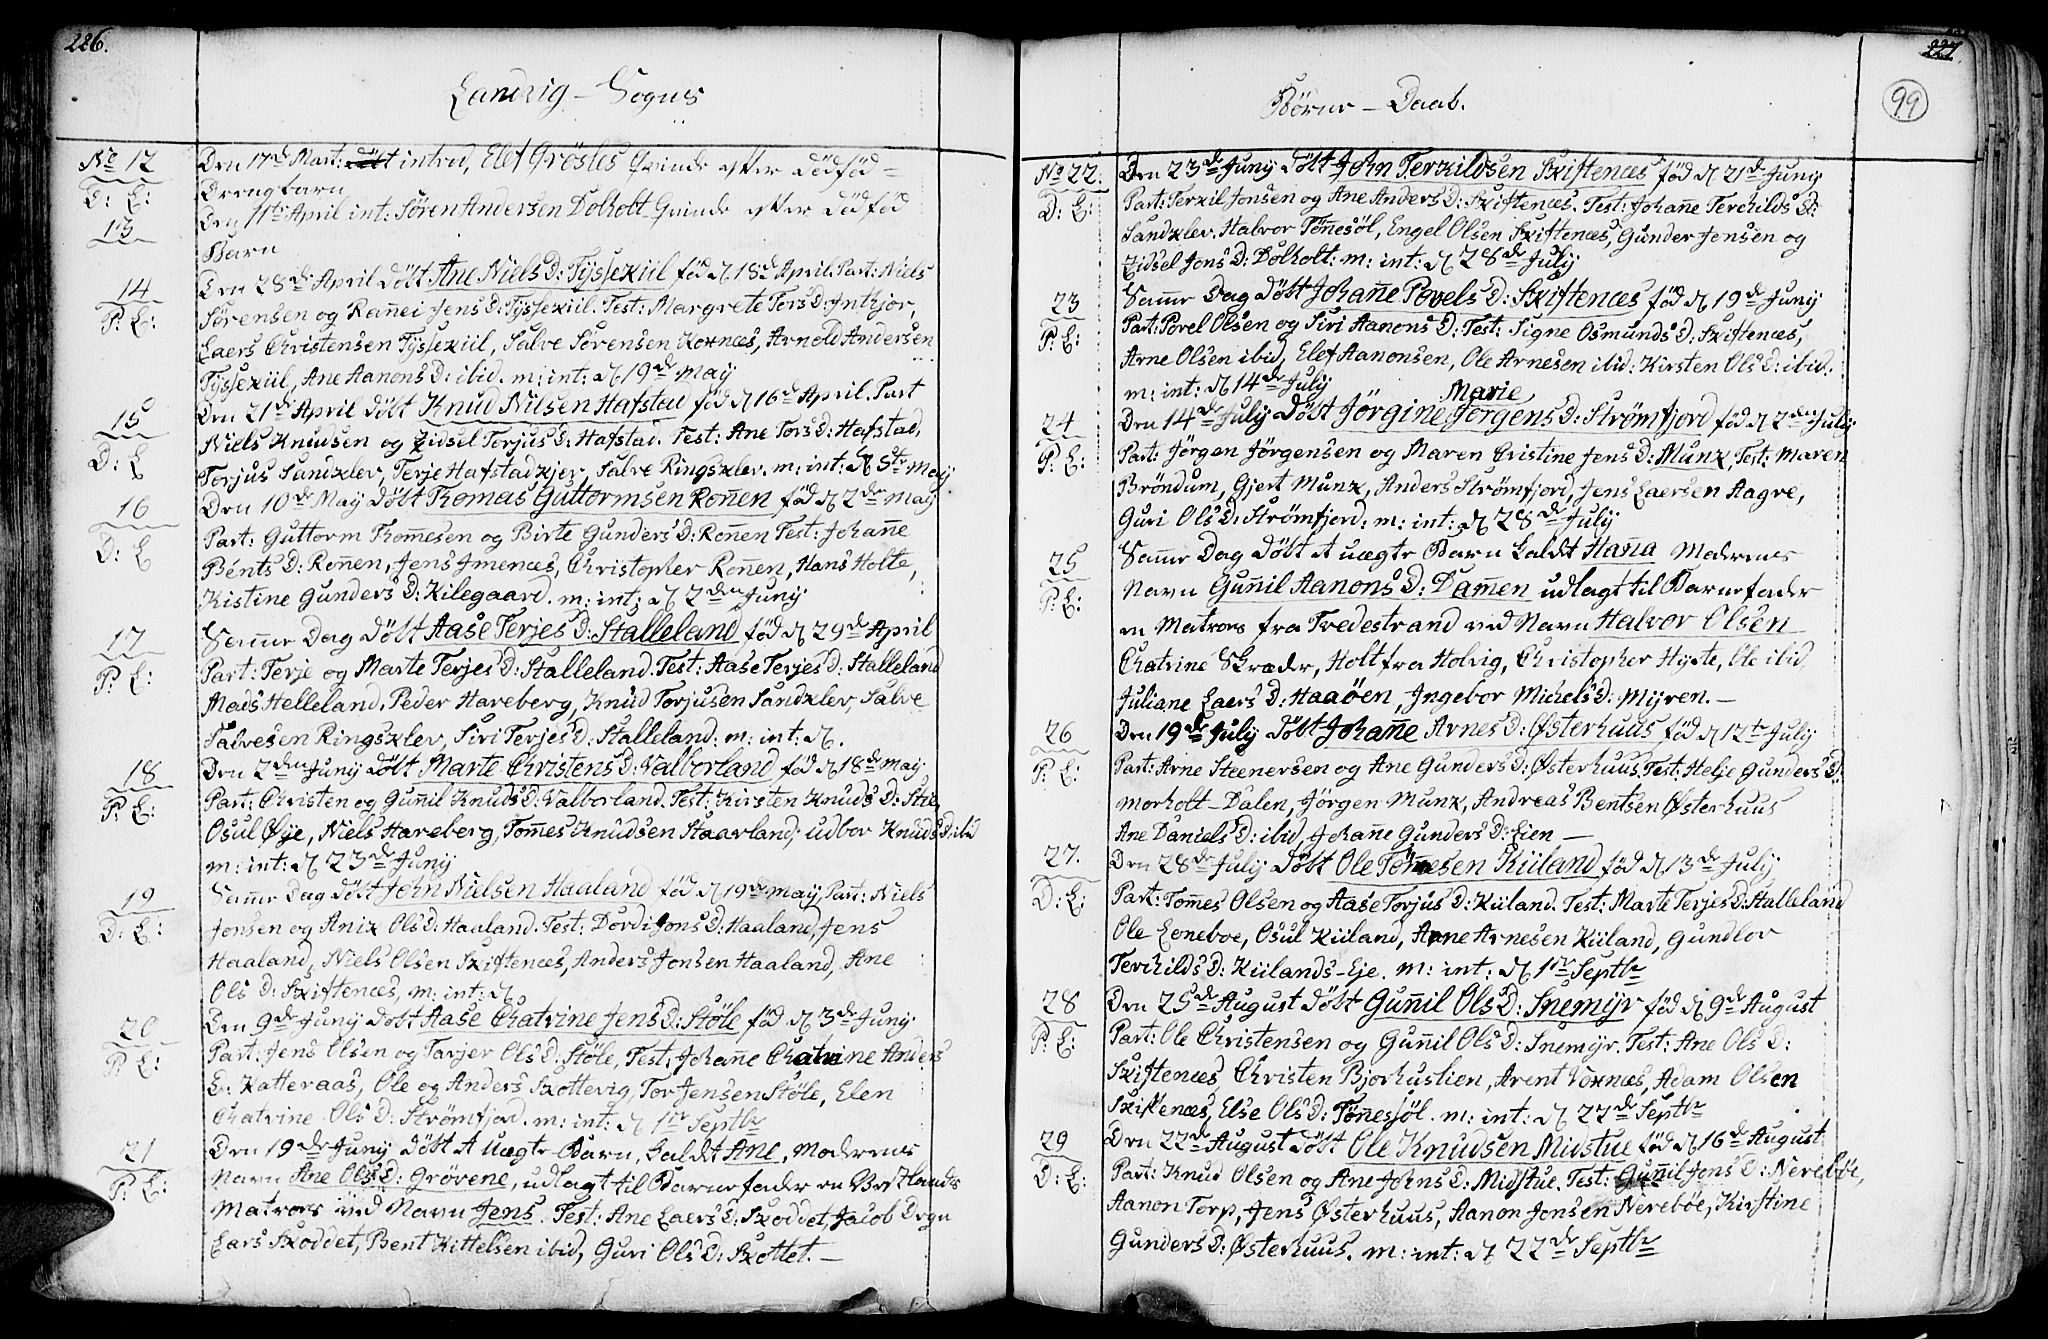 226.
Landvig - Sogns
No 12
D: E:
Den 17de Mart: døbt intred, Elef Grøsles Qvinde efter dødfød
Drengbarn
13
Den 11te April int: Sören Andersen Dolholt Qvinde efter dødfød
Barn
14
P: E:
Den 28de April döbt Ane Niels D: Tÿssekiil föd d 18de April. Part: Niels
Sörensen og Rañei Jens D: Tÿssekiil. Test: Margrete Tors D: Inthjor,
Laers Christensen Tÿssekiil, Salve Sörensen Koxnæs, Arnold Andersen
Tÿssekiil, Ane Aanons D: ibid. m: int: d 19de Maÿ
15
D: E
Den 21de April döbt Knud Nilsen Hafstad föd d 16de April. Part
Niels Knudsen og Zidsel Torjus D: Hafstad. Test: Ane Tors D: Hafstad,
Torjus Sandklev, Terje Hafstadkjer, Salve Ringsklev. m: int: d 5te Maÿ
16
D: E
Den 10de Maÿ döbt Tomas Guttormsen Roñen föd d 2den Maÿ
Part: Guttorm Tomesen og Birte Gunders D: Roñen Test: Johañe
Bents D: Roñen, Jens Imenæs, Christopher Roñen, Hans Holte,
Kistine Gunders D: Kilegaard. m: int: d 2den Junÿ
17
P: E:
Same Dag döbt Aase Terjes D: Stalleland föd d 29de April
Part: Terje og Marte Terjes D: Stalleland. Test: Aase Terjes D: Stalleland
Mads Helleland. Peder Hareberg, Knud Torjusen Sandklev, Salve
Salvesen Ringsklev, Siri Terjes D: Stalleland: m: int: d.
18
P: E:
Den 2den Junÿ döbt Marte Christens D: Valborland föd d 18de Maÿ
Part: Christen og Guñil Knuds D: Valborland. Test: Kirsten Knuds D: Stie
Osul Øÿe, Niels Hareberg, Tomes Knudsen Staarland, udbor Knuds D: ibid
m: int: d 23de Junÿ
19
D: E:
Same Dag döbt John Nielsen Haaland föd d 19de Maÿ, Part: Niels
Jonsen og Anix Ols D: Haaland. Test: Dordi Jons D: Haaland, Jens
Haaland, Niels Olsen Skiftenæs, Anders Jonsen Haaland, Ane
Ols D: Skiftenæs, m: int: d
20
P: E:
Den 9de Junÿ döbt Aase Chatrine Jens D: Støle föd d 3de Junÿ
Part: Jens Olsen og Tarjer Ols D: Støle, Test: Johañe Chatrine Anders
D: Katteraas, Ole og Anders Skottevig, Tor Jensen Støle, Elen
Chatrine Ols D: Strömfjord. m: int: d 1te Septbr
21
P: E:
Den 19de Junÿ döbt et Uægte Barn, kaldt Ane, Moderens
Navn Ane Ols D: Grövene, udlagt til Barnefader en Vestlands
Matros ved Navn Jens. Test: Ane Laers D: Skoddet, Jacob Degn
Lars Skoddet, Bent Kittelsen ibid, Guri Ols D: Skottet. —
227.
99
Börne - Daab.
No 22.
D: E:
Den 23de Junÿ döbt John Terkildsen Skiftenæs föd d 21de Junÿ
Part: Terkil Jonsen og Ane Anders D: Skiftenæs. Test: Johañe Terchilds D:
Sandklev. Halvor Tönesöl, Engel Olsen Skiftenæs, Gunder Jensen og
Zidsel Jons D: Dolholt: m: int: d 28de Julÿ
23
P: E:
Same Dag döbt Johañe Povels D: Skiftenæs föd d 19de Junÿ
Part: Povel Olsen og Siri Aanons D: Test: Signe Osmunds D: Skiftenæs,
Arne Olsen ibid, Elef Aanonsen, Ole Arnesen ibid: Kirsten Ols D: ibid.
m: int: d 14de Julÿ
24
P: E:
Marie
Den 14de Julÿ döbt Jörgine Jörgens D: Strömfjord föd d 2den Julÿ
Part: Jörgen Jörgensen og Maren Cristine Jens D: Munk, Test: Maren
Bröndum, Gjert Munk, Anders Strömfjord, Jens Laersen Aagre,
Guri Ols D: Strömfjord: m: int: d 28de Julÿ
25
P: E:
Same Dag döbt et uægte Barn kaldt Haña Moderens
Navn Guñil Aanons D: Damen udlagt til Barnefader
en Matros fra Tvedestrand ved Navn Halvor Olsen
Chatrine Skræder, Holt fra Holvig, Christopher Hÿste, Ole ibid,
Juliane Laers D: Haaöen, Ingebor Michels D: Mÿren. —
26
P: E:
Den 19de Julÿ döbt Johañe Arnes D: Østerhuus föd d 12te Julÿ
Part: Arne Steenersen og Ane Gunders D: Østerhuus, Test: Helje Gunders D:
Morholt-Dalen, Jörgen Munk, Andreas Bentsen Østerhuus
Ane Daniels D: ibid, Johañe Gunders D: Lien —
27.
D: E:
Den 28de Julÿ döbt Ole Tomesen Kiiland föd d 13de Julÿ
Part: Tomes Olsen og Aase Torjus D: Kiiland. Test: Marte Terjes D: Stalleland
Ole Loneboe, Osul Kiiland, Arne Arnesen Kiiland, Gundlov
Terchilds D: Kiilands-Eje. m: int: d 1te Septbr
28
P: E:
Den 25de August döbt Guñil Ols D: Snemÿr föd d 9de August
Part: Ole Christensen og Guñil Ols D: Snemÿr. Test: Ane Ols D:
Skiftenæs, Christen Bjorhustien, Arent Voxnæs, Adam Olsen
Skiftenæs, Else Ols D: Tönesöl. m: int: d 22de Septbr
29
D: E:
Den 22de August döbt Ole Knudsen Midstue föd d 16de August
Part: Knud Olsen og Ane Johns D: Midstue. Test: Guñil Jons D: Nereböe,
Aanon Torp, Jens Østerhuus, Aanon Jonsen Nereböe, Kirstine
Gunders D: Østerhuus. m: int: d 22de Septbr